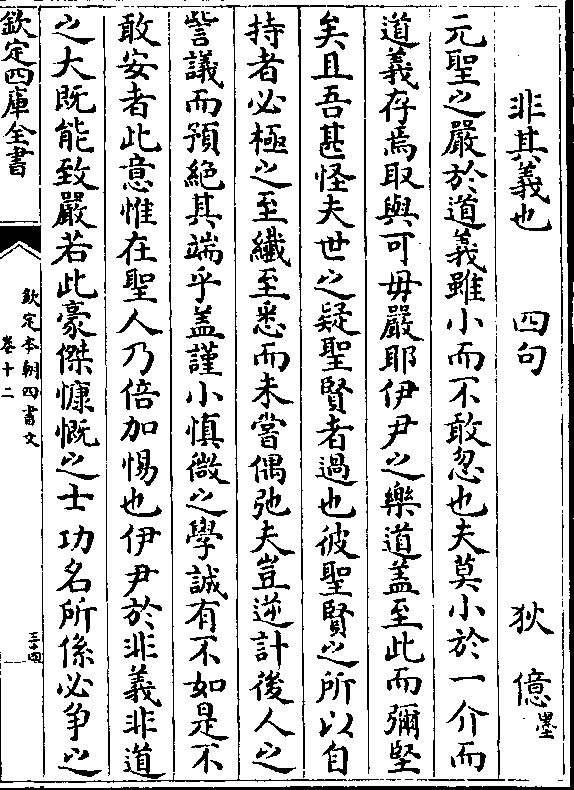 非其義也 四句 狄億墨
元聖之嚴於道義雖小而不敢忽也夫莫小於一介而
道義存焉取與可毋嚴耶伊尹之樂道蓋至此而彌堅
矣且吾甚怪夫世之疑聖賢者過也彼聖賢之所以自
持者必極之至纖至悉而未嘗偶弛夫豈逆計後人之
訾議而預絕其端乎蓋謹小慎微之學誠有不如是不
敢安者此意惟在聖人乃倍加惕也伊尹於非義非道
之大既能致嚴若此豪傑慷慨之士功名所係必争之
欽定四庫全書
欽定本朝四書文
卷十二
三十四